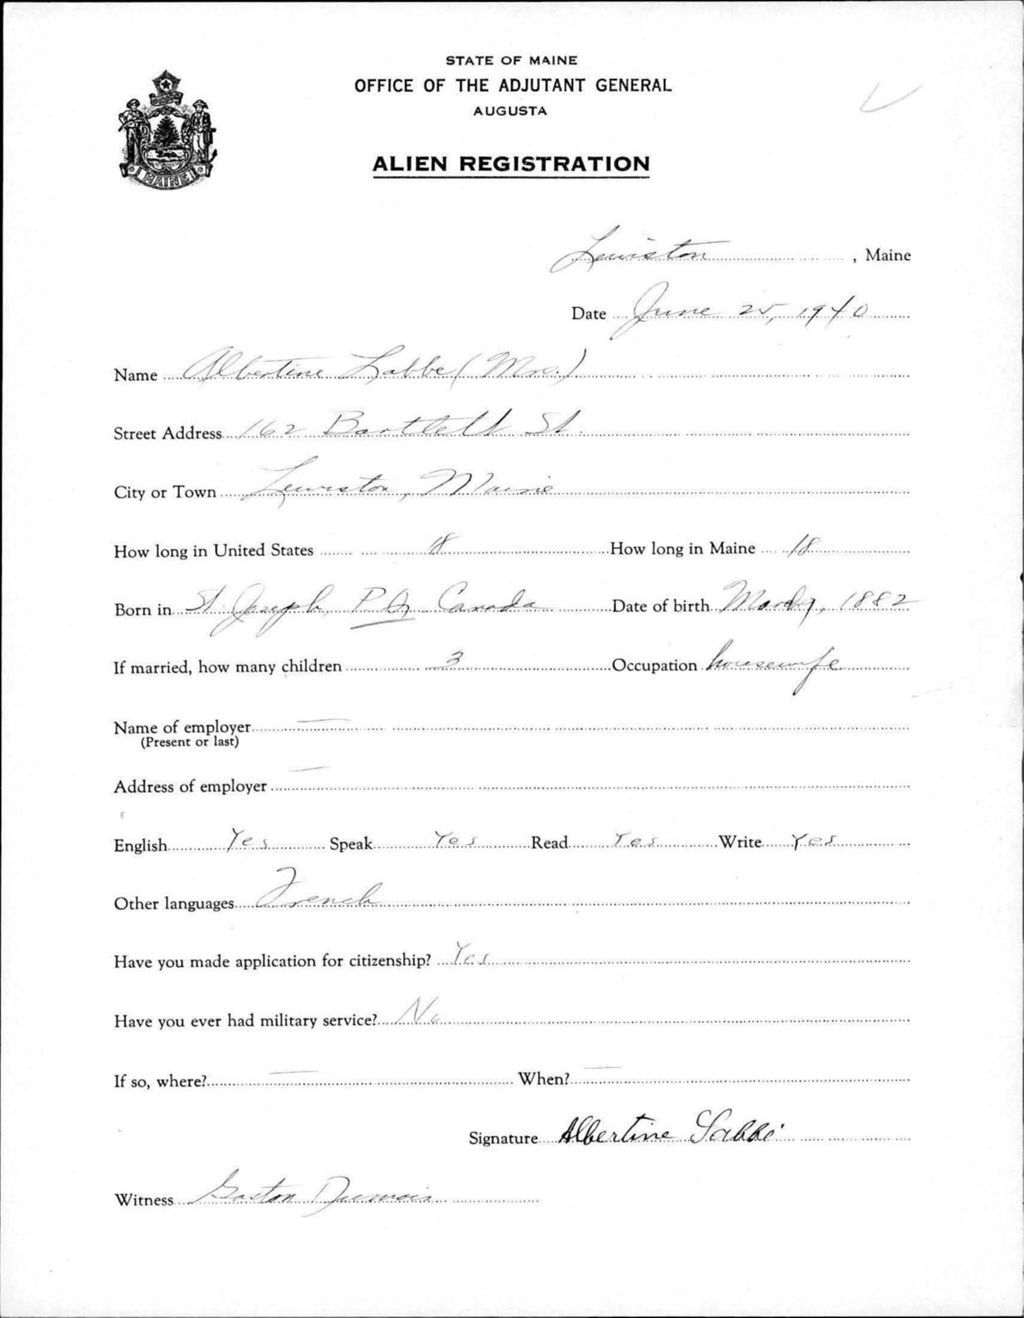 STATE OF MAINE
OFFICE OF THE ADJUTANT GENERAL
AUGUSTA
MAINE
ALIEN REGISTRATION
Lewiston, Maine
Date June 25, 1940
Name Albertine Labbe (Mrs.)
Street Address 162 Bartlett St.
City or Town Lewiston, Maine
How long in United States 18 How long in Maine 18
Born in St. Joseph, P Q Canada Date of birth 1882
If married, how many children 3 Occupation housewife
Name of employer —
(Present or last)
Address of employer —
English Yes Speak Yes Read Yes Write Yes
Other languages French
Have you made application for citizenship? Yes
Have you ever had military service? No
If so, where? — When? —
Signature Albertine Labbé
Witness Gaston Dumais